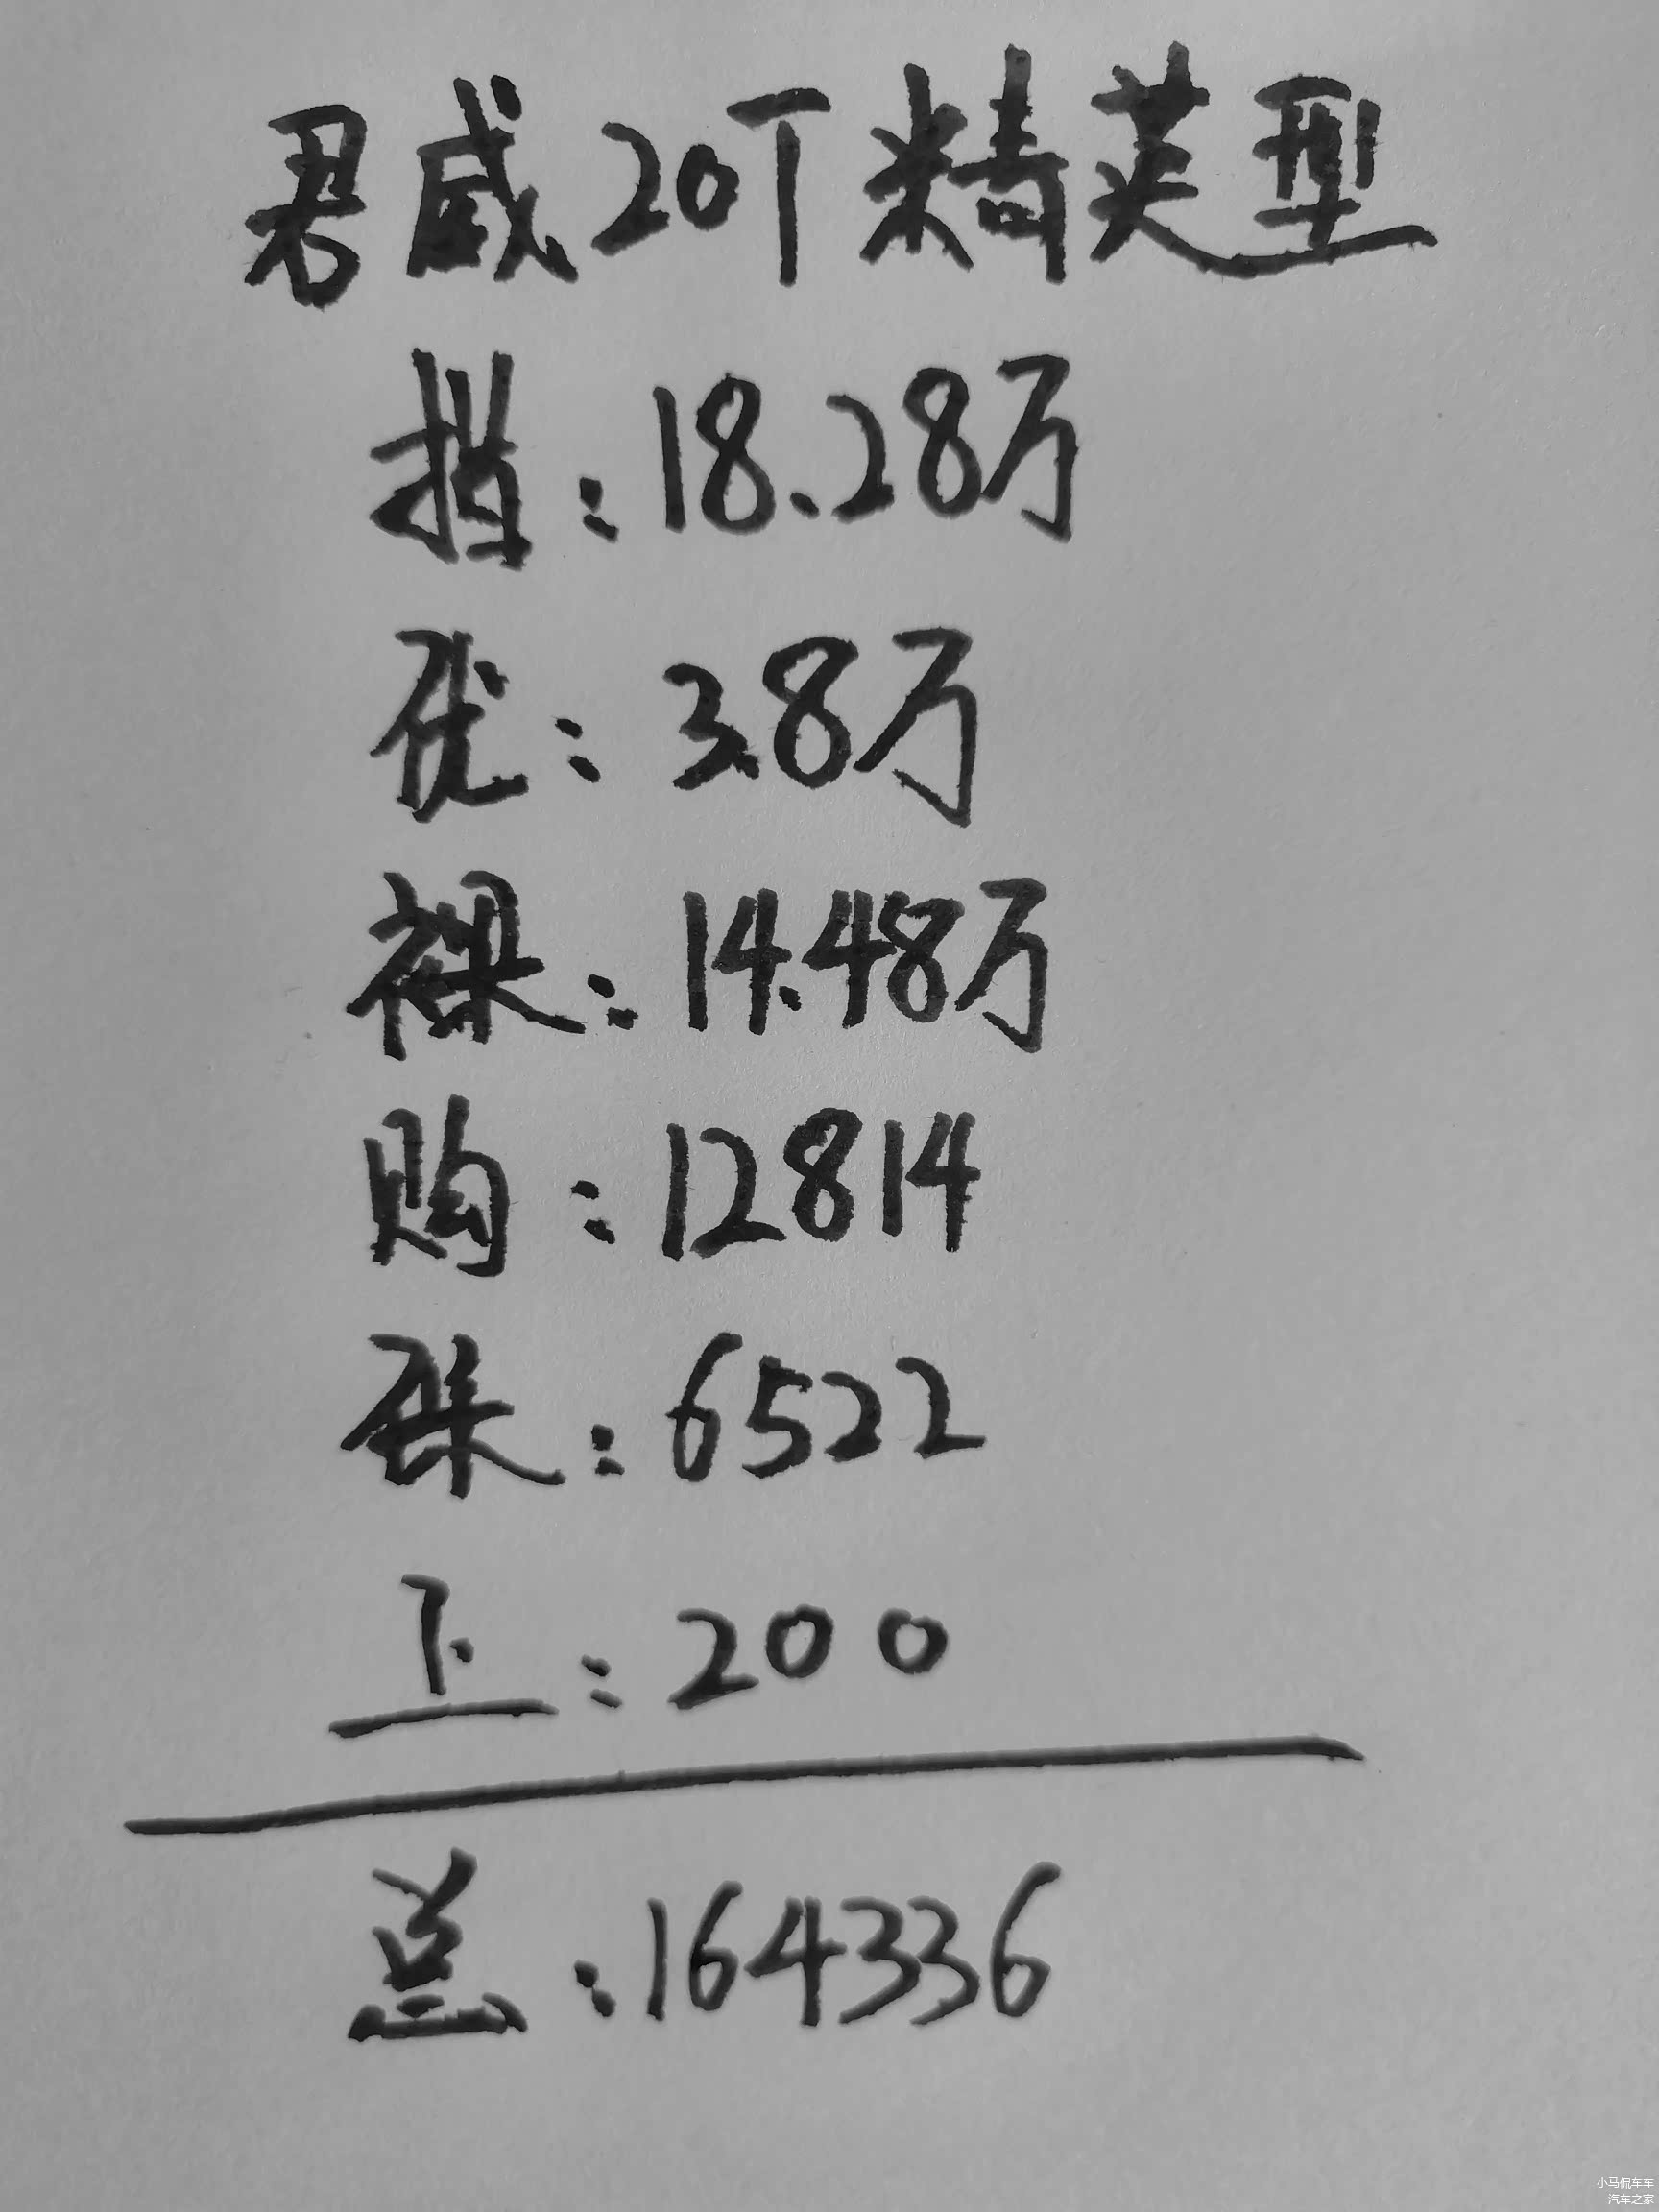 君威20T精英型
指:18.28万
优:3.8万
裸:14.48万
购:12814
保:6522
上:200
总:164336
小马侃车车
汽车之家